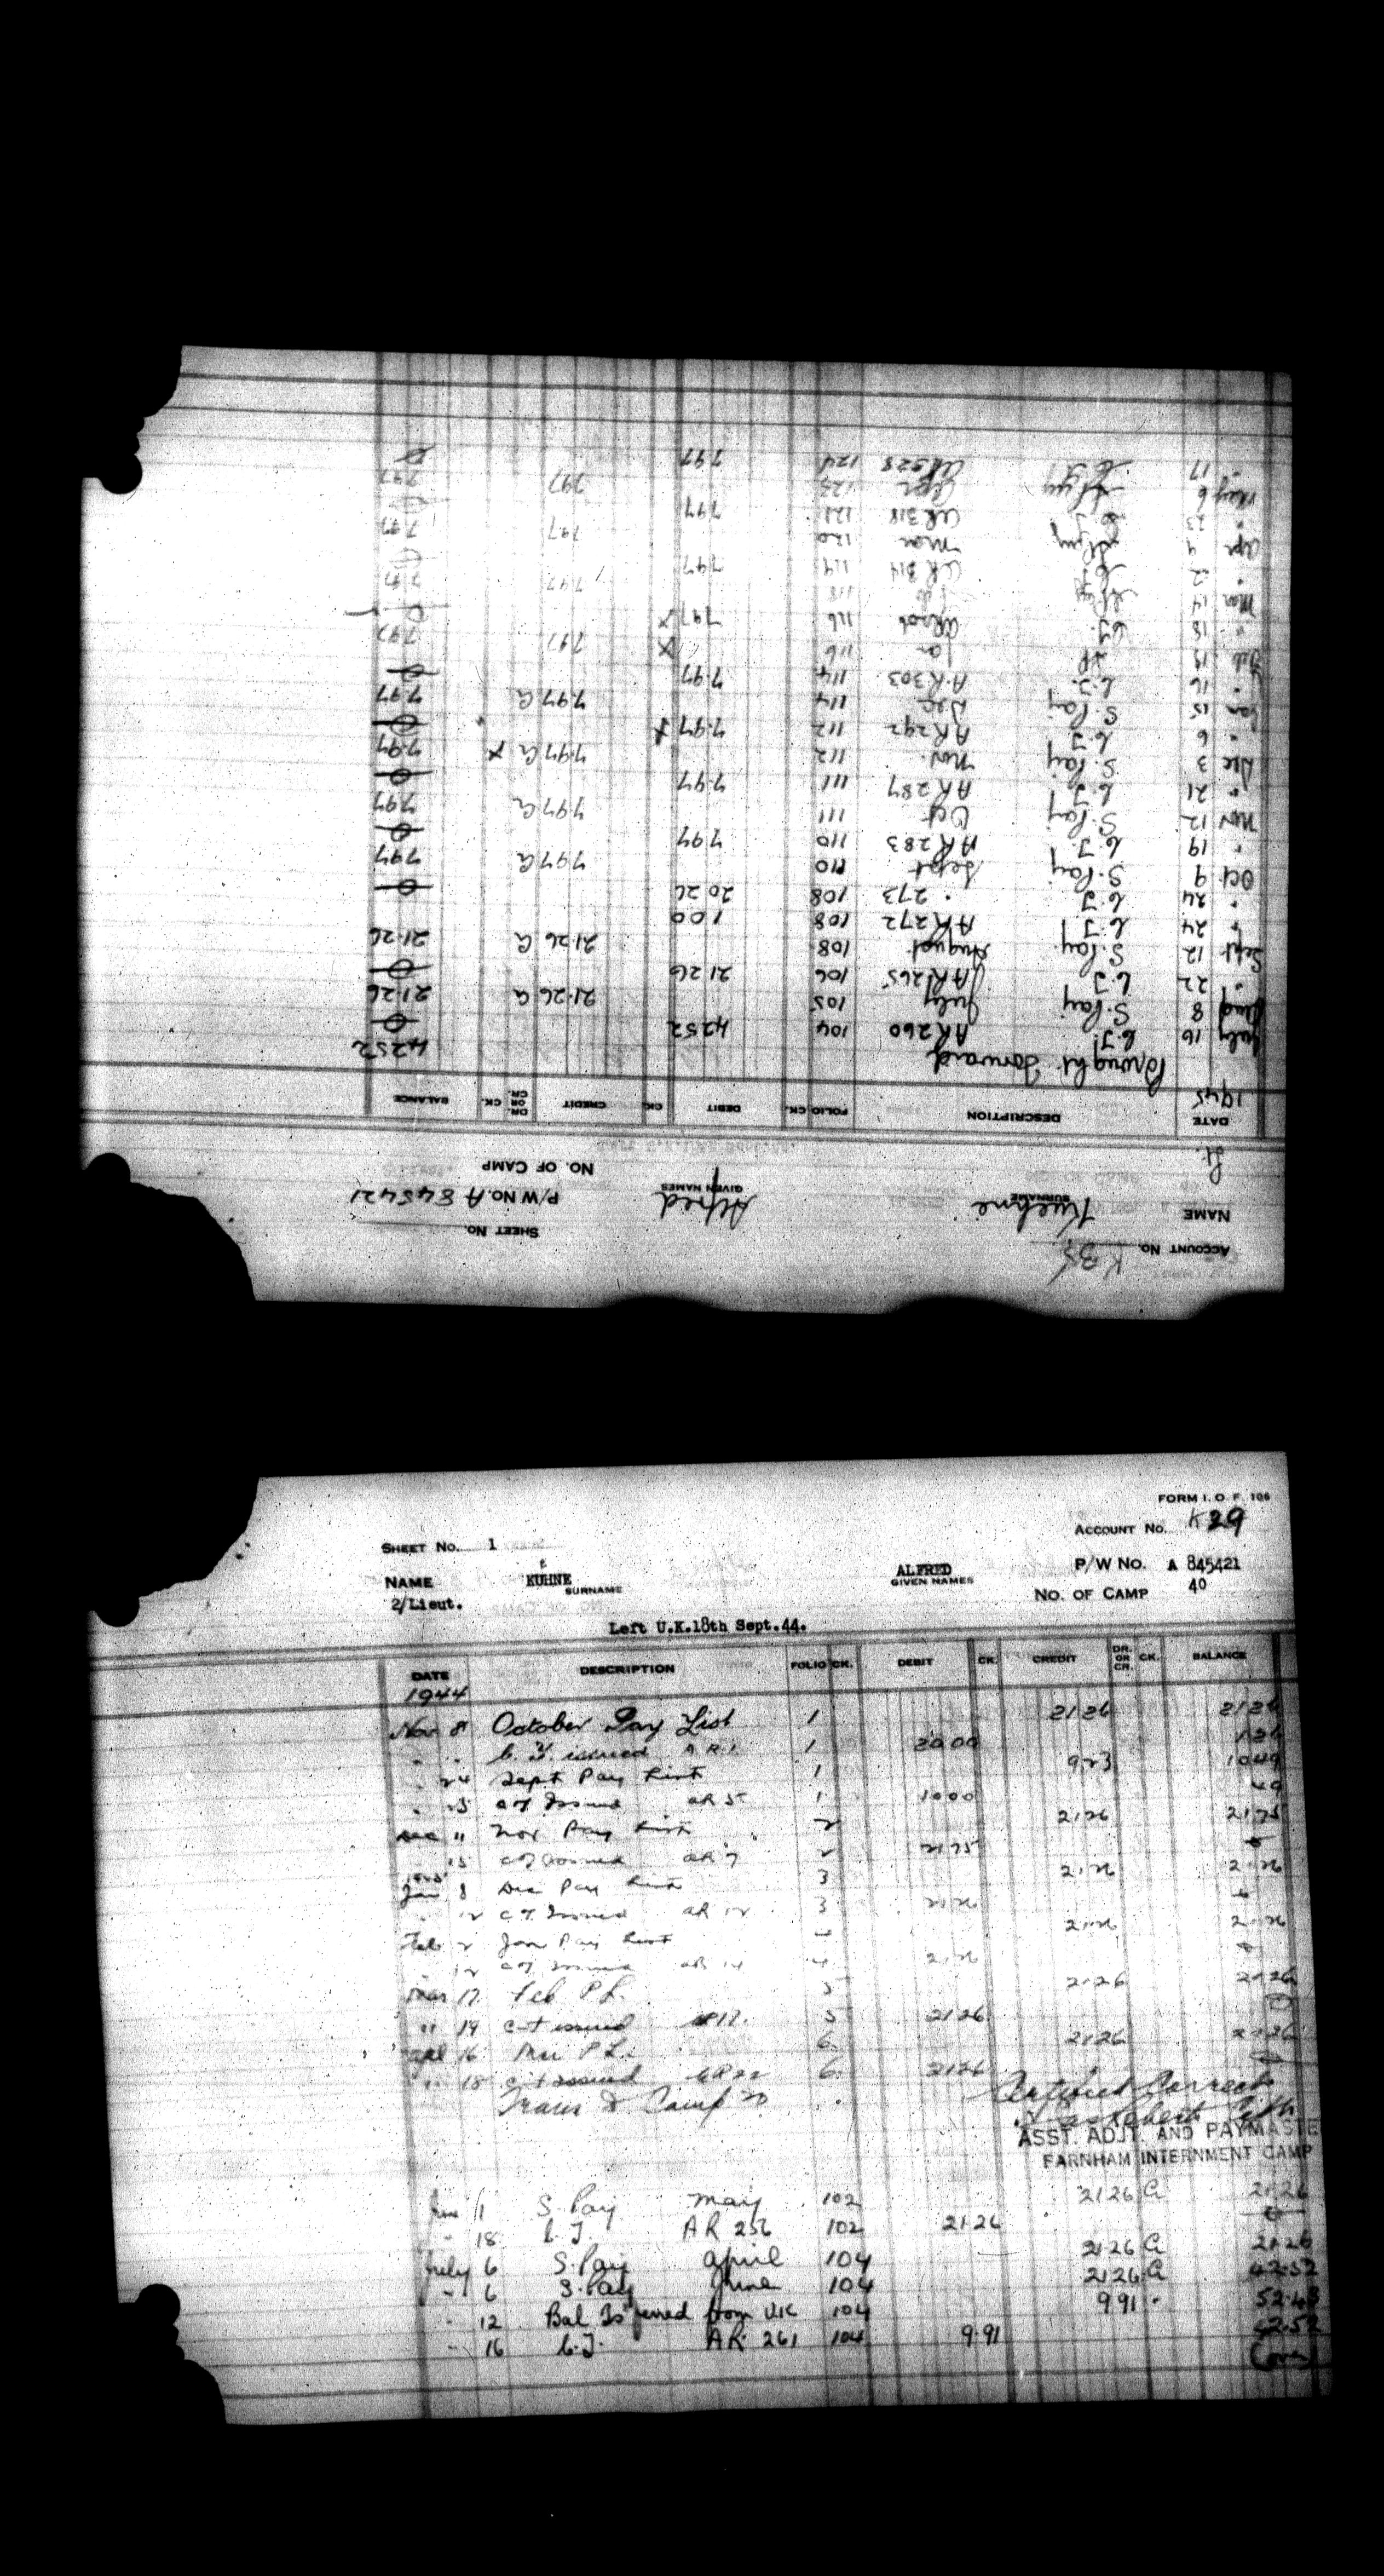 FORM I. O. F. 106
ACCOUNT No. K29
SHEET No. 1
NAME KUHNE SURNAME ALFRED GIVEN NAMES P/W No. A 845421
e
2/Lieut. NO. OF CAMP 40
Left U.K.18th Sept.44.
DATE DESCRIPTION FOLIO CK. DEBIT CK. CREDIT DR. OR CR. CK. BALANCE
1944
Nov 8 October Pay List 1 21 26 21 26
" " C. T. issued A R 1 1 20 00 1 26
" 24 Sept Pay List 1 9 23 10 49
" 25 CT Issued AR 5 1 10 00 49
Dec 11 Nov Pay List 2 21 26 21 75
" 15 CT Issued AR 7 2 21 75 0
1945
Jan 8 Dec Pay List 3 21 26 21 26
" 12 C T. Issued AR 12 3 21 26 0
Feb 2 Jan Pay List 4 21 26 21 26
" 12 CT Issued AR 14 4 21 26 0
Mar 17 Feb P L. 5 21 26 21 26
" 19 C-T issued AR 17. 5 21 26 0
Apl 16 Mar P L. 6 21 26 21 26
" 18 C-T issued AR 22 6 21 26 0
Trans to Camp Certified Correct
ASST. ADJT. AND PAYMASTE
FARNHAM INTERNMENT CAMP
June 11 S. Pay May 102 21 26 Cr 21.26
" 18 C. T. AR 256 102 21.26 0
July 6 S. Pay April 104 21 26 Cr 21.26
" 6 S. Pay June 104 21 26 Cr 42.52
" 12 Bal Tsferred from UK 104 9 91 " 52.43
" 16 C. T. AR 261 104 9.91 42.52
(over)
ACCOUNT No. K35 SHEET No.
NAME Kuehne SURNAME Alfred GIVEN NAMES P/W No. A 845421
Lt. NO. OF CAMP
DATE DESCRIPTION FOLIO CK. DEBIT CK. CREDIT DR. OR CR. CK. BALANCE
1945
Brought Forward 42 52
July 16 C. T. AR 260 104 42 52 0
Aug 8 S. Pay July 105 21.26 Cr 21.26
" 22 C. T. AR 265 106 21 26 0
Sept 12 S. Pay August 108 21 26 Cr 21.26
" 24 C. T. AR 272 108 1 00
" 24 C. T. " 273 108 20 26 0
Oct 9 S. Pay Sept 110 7 97 Cr 7 97
" 19 C. T. AR 283 110 7 97 0
Nov 12 S. Pay Oct 111 7 97 Cr 7 97
" 21 C. T. AR 287 111 7.97 0
Dec 3 S. Pay Nov. 112 7.97 Cr x 7.97
" 6 C. T. AR 292 112 7.97 x 0
Jan 15 S. Pay Dec 114 7.97 Cr 7.97
" 16 C. T. AR 303 114 7.97 0
Feb 14 116 7 97 7 97
" 18 C. T. 116 7 97 x 0
Mar 14 118 7 97 7 97
" 2 AR 314 119 7 97
Apr 4 Mar 120 7 97 7 97
" 23 AR 318 121 7 97
May 6 Apr 123 7 97 7 97
" 17 AR 328 124 7 97 0